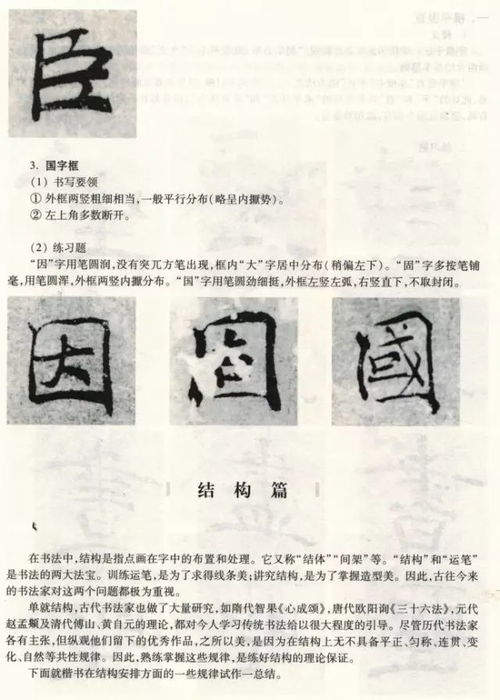 臣
3. 国字框
(1) 书写要领
① 外框两竖粗细相当,一般平行分布(略呈内擫势)。
② 左上角多数断开。
(2) 练习题
“因”字用笔圆润,没有突兀方笔出现,框内“大”字居中分布(稍偏左下)。“固”字多按笔铺
毫,用笔圆浑,外框两竖内擫分布。“国”字用笔圆劲细挺,外框左竖左弧,右竖直下,不取封闭。
因 固 國
结构篇
在书法中,结构是指点画在字中的布置和处理。它又称“结体”“间架”等。“结构”和“运笔”
是书法的两大法宝。训练运笔,是为了求得线条美;讲究结构,是为了掌握造型美。因此,古往今来
的书法家对这两个问题都极为重视。
单就结构,古代书法家也做了大量研究,如隋代智果《心成颂》,唐代欧阳询《三十六法》,元代
赵孟頫及清代傅山、黄自元的理论,都对今人学习传统书法给以很大程度的引导。尽管历代书法家
各有主张,但纵观他们留下的优秀作品,之所以美,是因为在结构上无不具备平正、匀称、连贯、变
化、自然等共性规律。因此,熟练掌握这些规律,是练好结构的理论保证。
下面就楷书在结构安排方面的一些规律试作一总结。